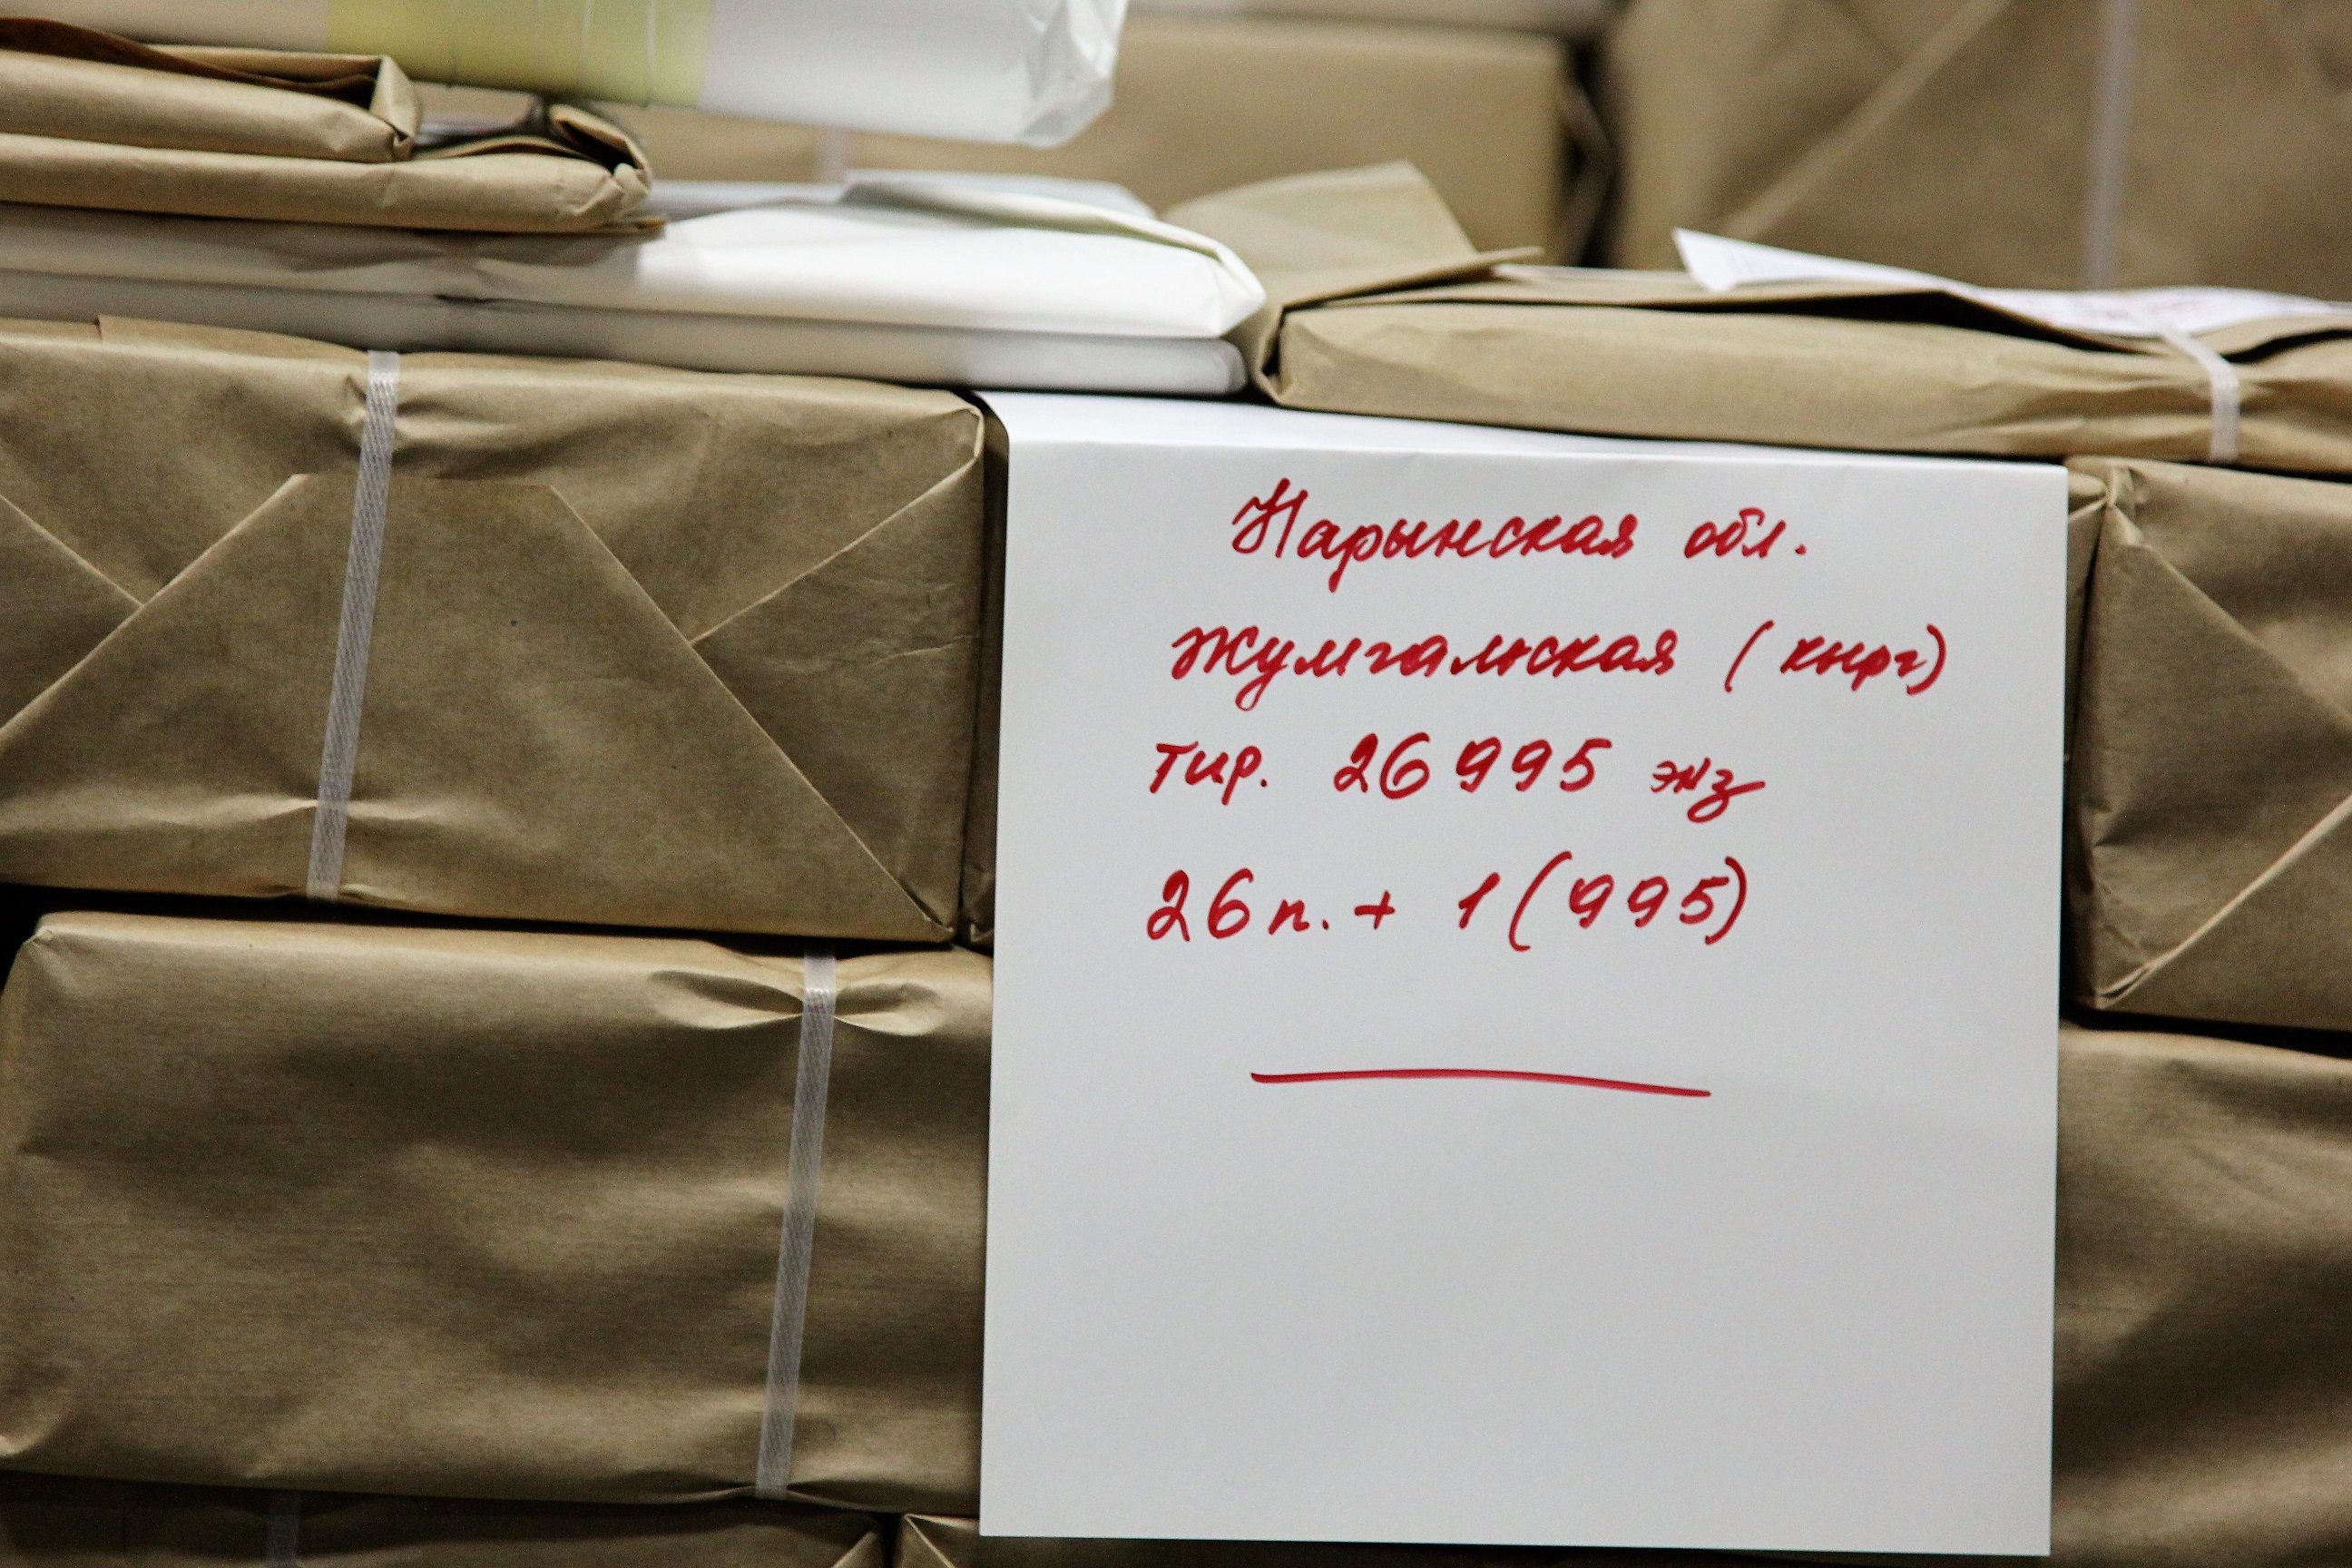 Нарынская обл.
Жумгальская (кырг)
тир. 26 995 экз
26 п. + 1 (995)